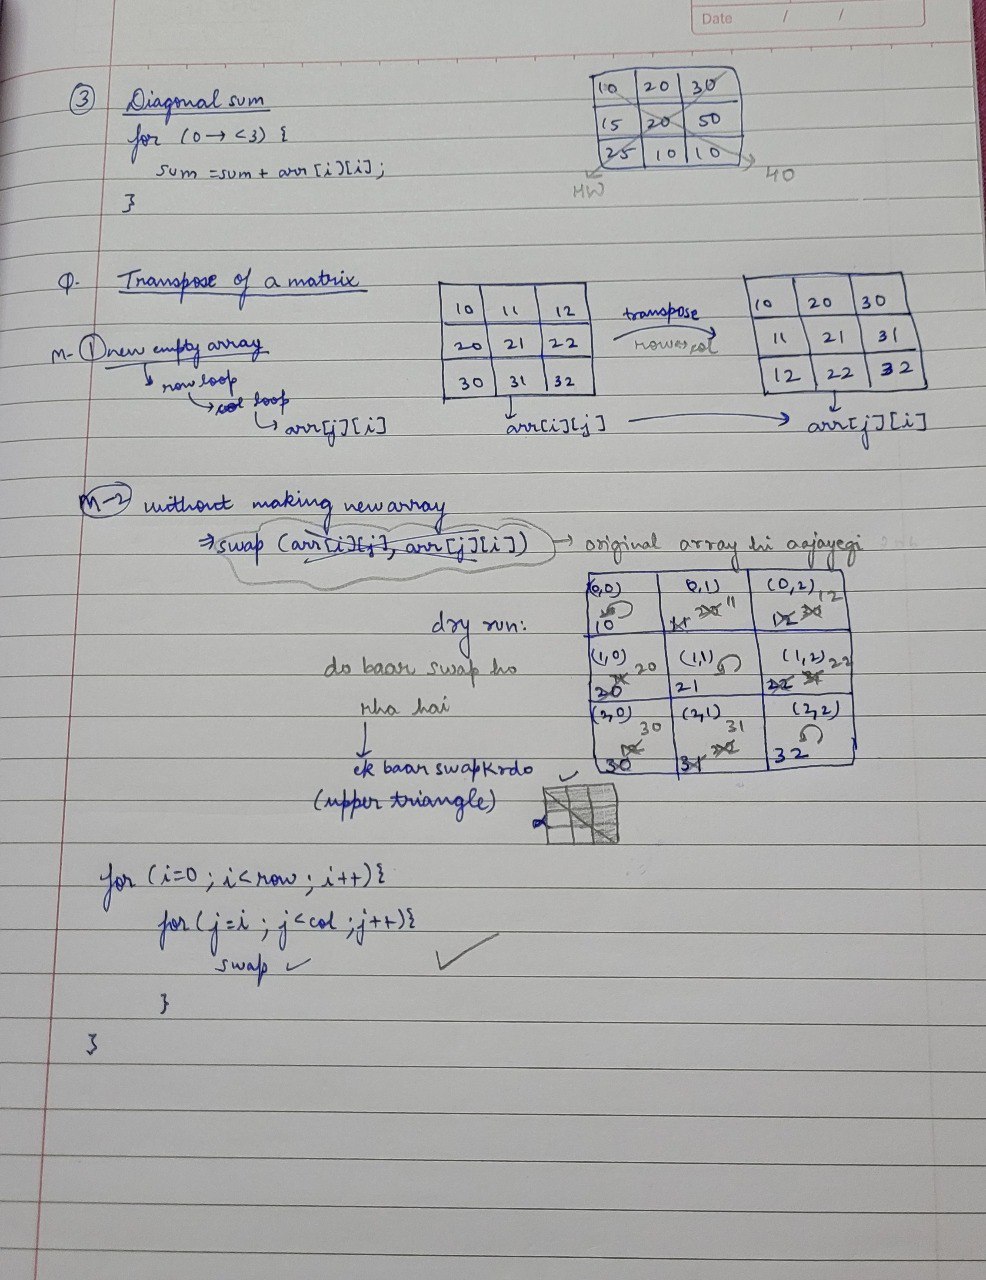 Date / /
③ Diagonal sum
for (0→<3) {
sum =sum + arr[i][i];
}
10 20 30
15 20 50
25 10 10
HW
40
Q. Transpose of a matrix
M-① new empty array
row loop
col loop
arr[j][i]
10 11 12
20 21 22
30 31 32
arr[i][j]
transpose
row↔col
10 20 30
11 21 31
12 22 32
arr[j][i]
M-2 without making new array
⇒ swap (arr[i][j], arr[j][i]) → original array hi aajayegi
dry run:
do baar swap ho
rha hai
ek baar swap krdo
(upper triangle)
(0,0) (0,1) (0,2)
10 11 20 11 12 30 12
(1,0) (1,1) (1,2)
20 11 20 21 22 31 22
(2,0) (2,1) (2,2)
30 12 30 31 22 31 32
for (i=0 ; i<row ; i++){
for(j=i ; j<col ; j++){
swap ✓
}
}